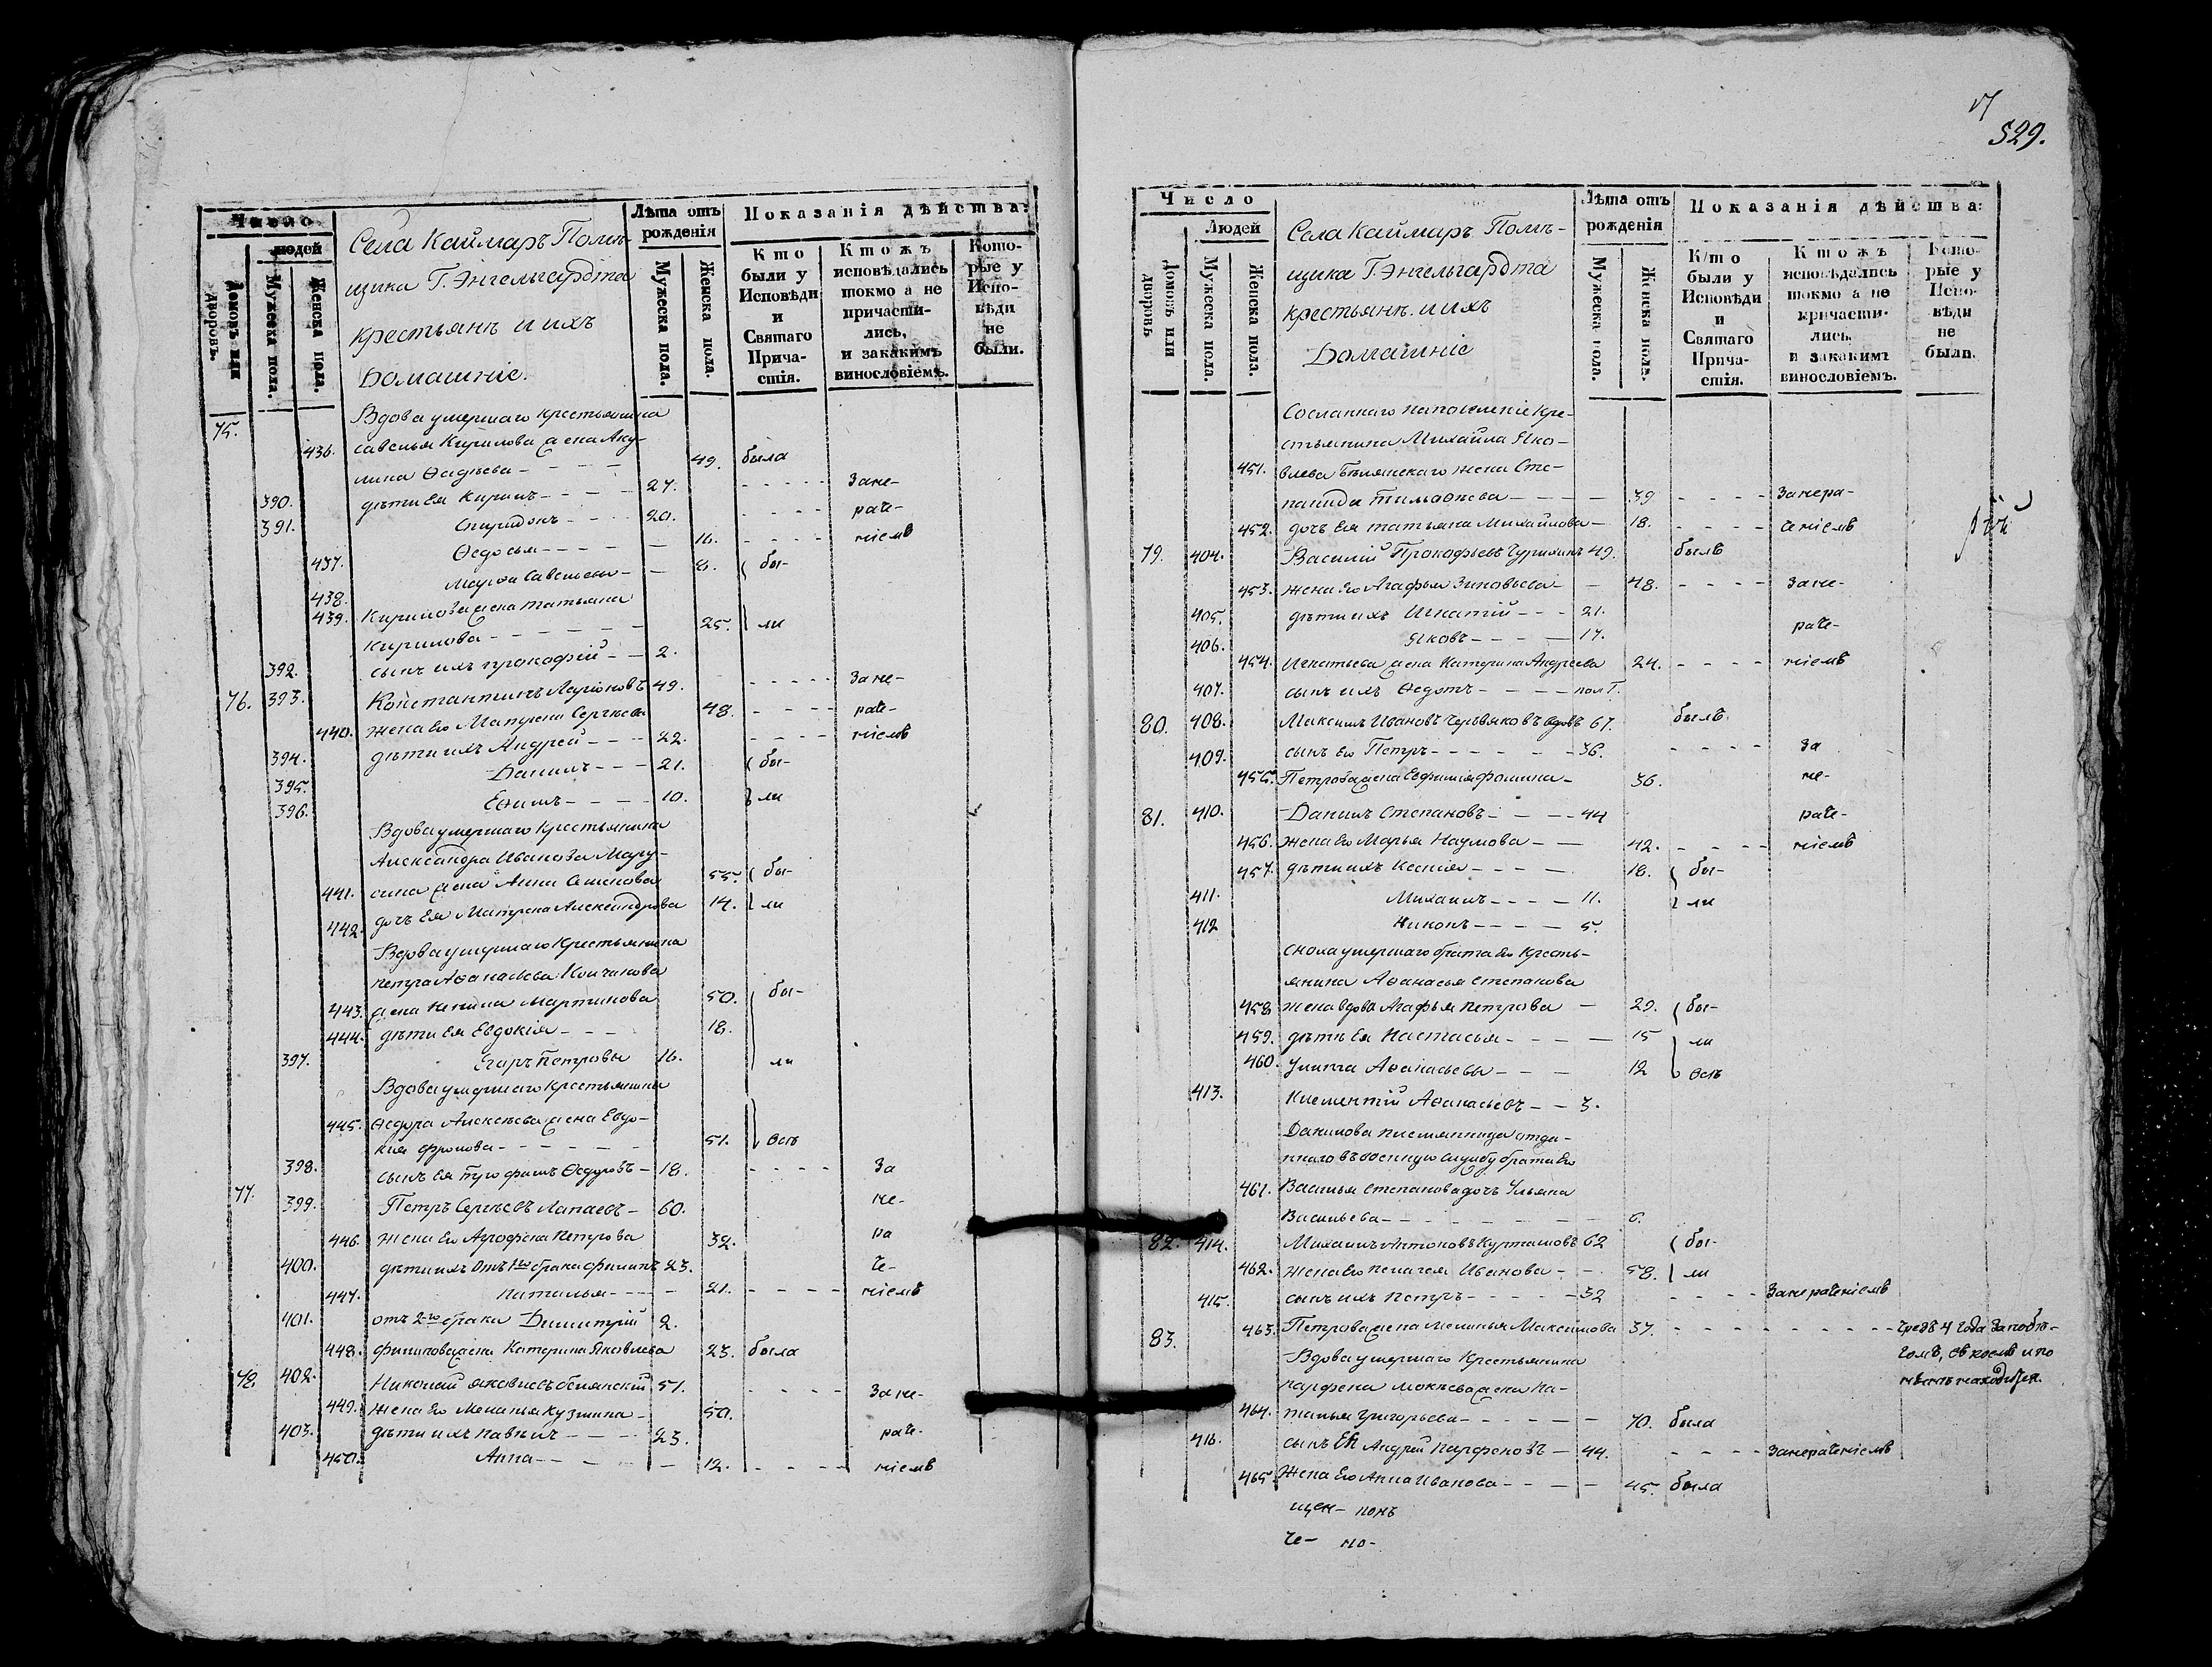 Число
людей
домовъ или дворовъ.
Мужеска пола.
Женска пола.
Села Каймаръ Помѣ-
щика Г. Энгельгардта
крестьянъ и ихъ
Домашніе.
Лѣта отъ рожденія
Мужеска пола.
Женска пола.
Показанія дѣйства:
Кто были у Исповѣди и Святаго Причастія.
Ктожъ исповѣдались токмо а не причастились, и закакимъ винословіемъ.
Которые у Исповѣди не были.
75. Вдова умершаго крестьянина
436. савелья Кирилова жена Аку-
лина Ѳадѣева - - - - 49. была
390. дѣти Ея Кирилъ - - - - 27. - - - - - Зане-
391. Спиридонъ - - - 20. - - - - раче-
437. Ѳедосья - - - - - 16. - - - - ніемъ
438. Марфа Савельевы - - 8. бы-
439. Кирилова жена татьяна
Кирилова - - - - - - 25. ли
392. сынъ ихъ прокофій - - 2.
76. 393. Констант​инъ Ларіоновъ 49. - - - - - Зане-
440. жена Ео Матрена Сергѣева 48. - - - - раче-
394. дѣти ихъ Андрей - - - 22. - - - - - ніемъ
395. Данилъ - - - 21. бы-
396. Еѳимъ - - - - 10. ли
Вдова умершаго крестьянина
Александра Иванова Мару-
441. сина жена Анна Семенова 55. бы-
442. дочь Ея Матрена Александрова 14. ли
Вдова умершаго Крестьянина
петра Аѳанасьева Кончикова
443. жена Ненила Мартинова 50. бы-
444. дѣти Ея Евдокія - - - 18.
397. Егаръ Петровы 16. ли
Вдова умершаго крестьянина
445. Ѳедора Алексѣева жена Евдо-
кия фролова - - - - - - 51. Всѣ
398. сынъ Ея трофимъ Ѳедоровъ - 18. - - - - За
77. 399. Петръ Сергѣевъ Лапаевъ - 60. не-
446. жена Ео Аграфена Петрова 32. ра
400. дѣти ихъ Отъ 1го брака филипъ 23. че-
447. наталья - - - 21. - - - - ніемъ
401. отъ 2го брака Димитрій 2.
448. филипова жена Катерина Яковлева 23. была
78. 402. Николай яковлевъ белянскій 51. - - - - Зане-
449. жена Ео Меланья Кузмина - 50.
403. дѣти ихъ павелъ - - - - 23. раче-
450. Анна - - - - - 12. - - - - ніемъ
529.
Число
Людей
Домовъ или дворовъ
Мужеска пола.
Женска пола.
Села Каймаръ Помѣ-
щика Г. Энгельгардта
крестьянъ и ихъ
Домашніе
Лѣта отъ рожденія
Мужеска пола.
Женска пола.
Показанія дѣйства:
Кто были у Исповѣди и Святаго Причастія.
Ктожъ исповѣдались токмо а не причастились, и закакимъ винословіемъ.
Которые у Исповѣди не были.
Сосланнаго напоселеніе Кре-
стьянина Михайла Яко-
451. влева Белянскаго жена Сте-
панида тимоѳеева - - - - 39 - - - - Занера-
452. дочь Ея татьяна Михайлова - 18. - - - - ченіемъ
79. 404. Василій Прокофьевъ Чурилинъ 49. былъ
453. жена Ео Агафья Зиновьева - - 48. - - - - Зане-
405. дѣти ихъ Игнатій - - - 21.
406. Яковъ - - - - 17. раче-
454. Игнатьева жена Катерина Андреева 24. - - - - ніемъ
407. сынъ ихъ Ѳедотъ - - - - пол Г.
80. 408. Максимъ Ивановъ Червяковъ вдовъ 67. былъ
409. сынъ Ео Петръ - - - - - 36. - - - - За
455. Петрова жена Евфимія фомина - 36. не-
81. 410. Данилъ Степановъ - - - - 44 раче-
456. жена Ео Марья Наумова - - 42. - - - - ніемъ
457. дѣти ихъ Ксенія - - - - 18. бы-
411. Михаилъ - - - - 11. ли
412 Никонъ - - - - 5.
сноха умершаго брата Ео Кресть-
янина Аѳанасья Степанова
458 жена вдова Агафья петрова - 29. бы-
459. дѣти Ея Настасья - - - - 15 ли
460. Улита Аѳанасьевы - - - 12 Всѣ
413. Климентій Аѳанасьевъ - - 3.
Данилова племянница отда-
ннаго въ военную службу брата Ео
461. Василья степанова дочь Ульяна
Васильева - - - - - - - 6.
82. 414. Михаилъ Антоновъ Курташовъ 62 бы-
462. жена Ео пелагея Иванова - - 58. ли
415. сынъ ихъ петръ - - - - - 32 - - - - Занераченіемъ
83. 463. Петрова жена Меланья Максимова 37. - - - - - - - - - чрезъ 4 года за побѣ-
гомъ, въ коемъ и по
нынѣ находится.
Вдова умершаго Крестьянина
парфена мокѣева жена На-
464. талья Григорьева - - - - - - 70. была
416. сынъ Ея Андрей парфеновъ - 44. - - - - Занераченіемъ
465. Жена Ео Анна Иванова - - - - 45. была
щен- нокъ
че- но-